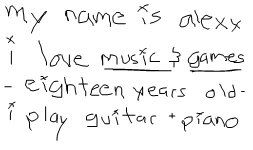 my name is alexx
i love music & games
- eighteen years old -
i play guitar + piano